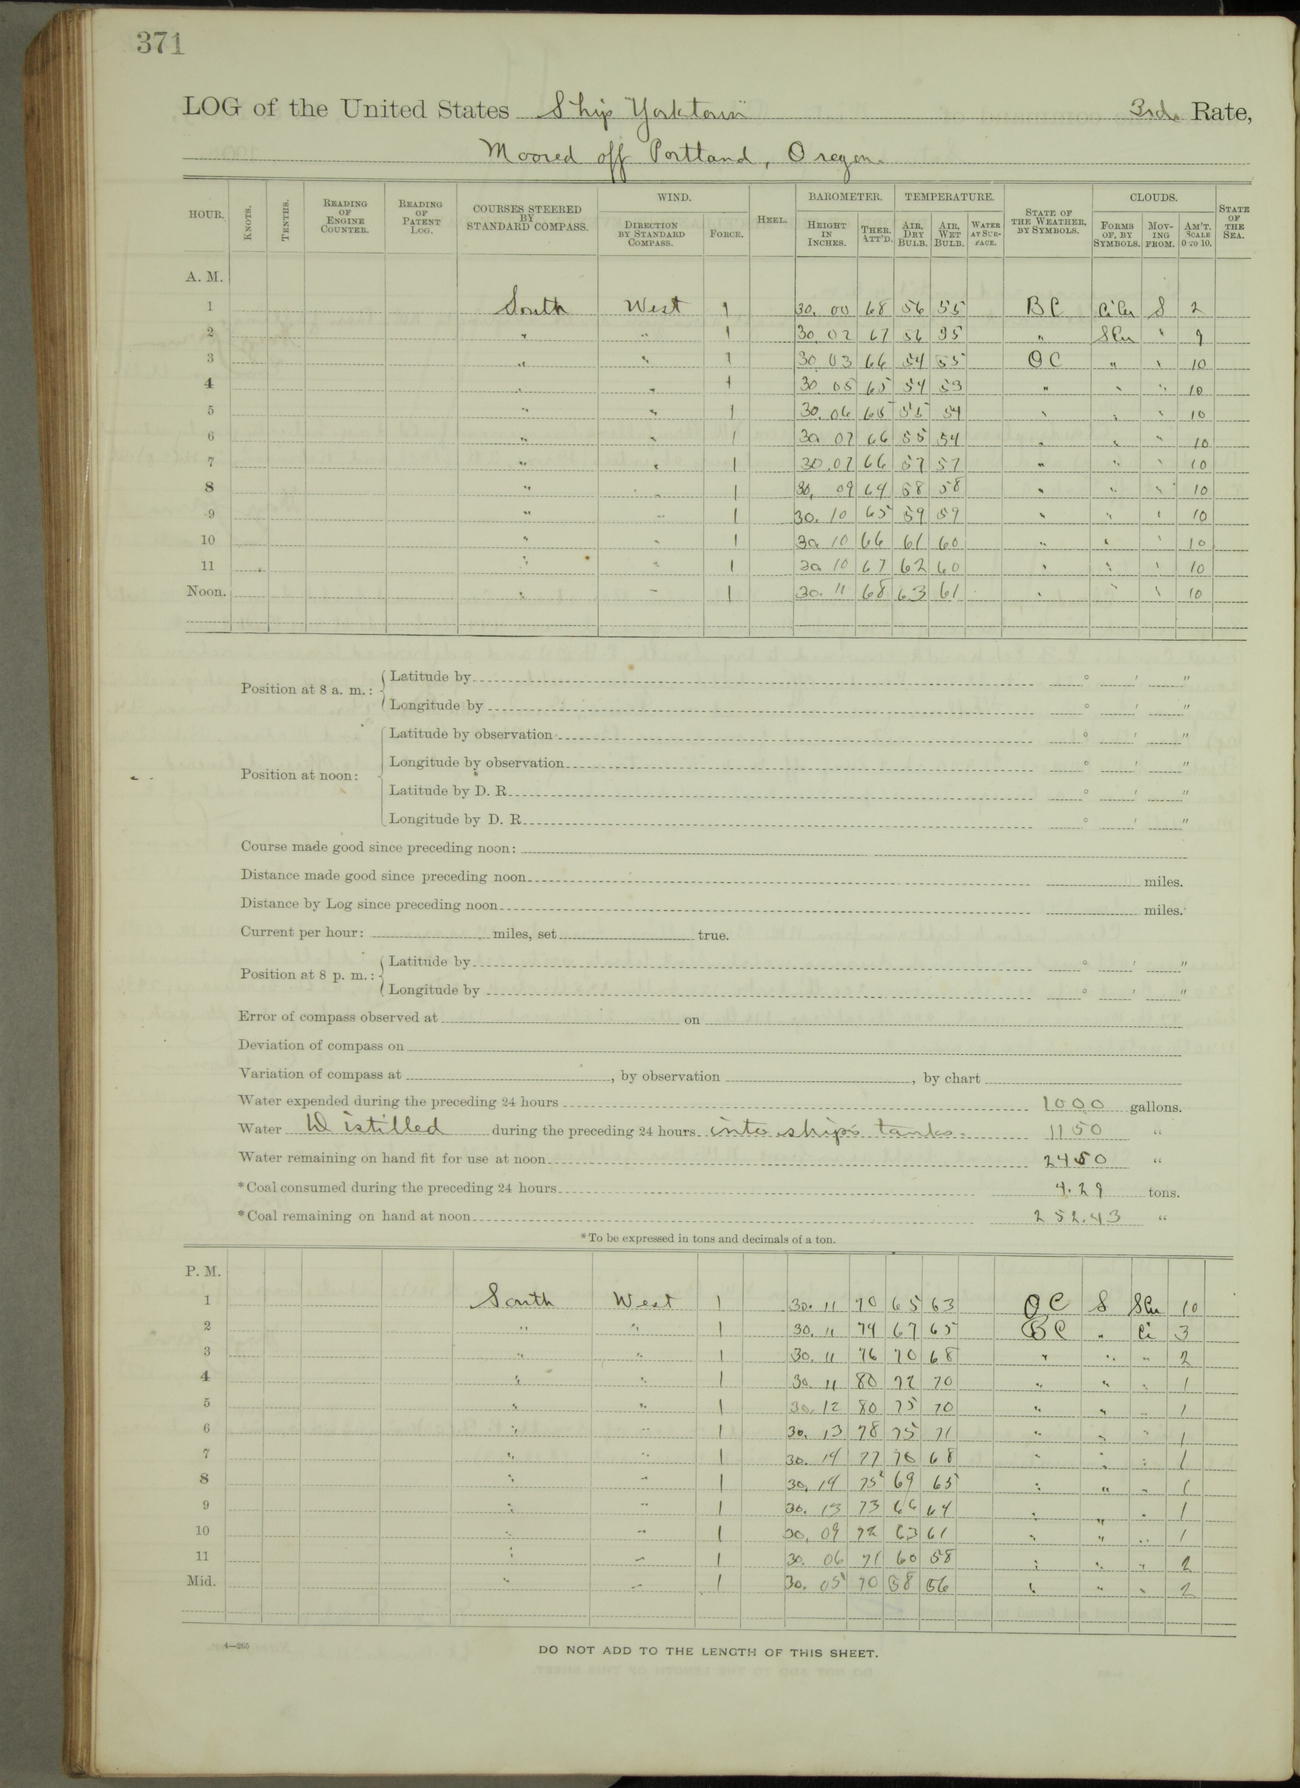 371
LOG of the United States Ship "Yorktown" 3rd Rate,
Moored off Portland, Oregon
HOUR. KNOTS. TENTHS. READING OF ENGINE COUNTER. READING OF PATENT LOG. COURSES STEERED BY STANDARD COMPASS. WIND. DIRECTION BY STANDARD COMPASS. FORCE. HEEL. BAROMETER. HEIGHT IN INCHES. THER. ATT'D. TEMPERATURE. AIR, DRY BULB. AIR, WET BULB. WATER AT SURFACE. STATE OF THE WEATHER, BY SYMBOLS. CLOUDS. FORMS OF, BY SYMBOLS. MOVING FROM. AM'T. SCALE 0 TO 10. STATE OF THE SEA.
A. M.
1 South West 1 30.00 68 56 55 BC CiCu S 2
2 " " 1 30.02 67 56 55 " SCu " 9
3 " " 1 30.03 66 54 55 OC " " 10
4 " " 1 30.05 65 54 53 " " " 10
5 " " 1 30.06 65 55 54 " " " 10
6 " " 1 30.07 66 55 54 " " " 10
7 " " 1 30.07 66 57 57 " " " 10
8 " " 1 30.09 64 58 58 " " " 10
9 " " 1 30.10 65 59 59 " " " 10
10 " " 1 30.10 66 61 60 " " " 10
11 " " 1 30.10 67 62 60 " " " 10
Noon. " " 1 30.11 68 63 61 " " " 10
Position at 8 a. m.: Latitude by ° ' "
Longitude by ° ' "
Position at noon: Latitude by observation ° ' "
Longitude by observation ° ' "
Latitude by D. R. ° ' "
Longitude by D. R. ° ' "
Course made good since preceding noon:
Distance made good since preceding noon miles.
Distance by Log since preceding noon miles.
Current per hour: miles, set true.
Position at 8 p. m.: Latitude by ° ' "
Longitude by ° ' "
Error of compass observed at on
Deviation of compass on
Variation of compass at , by observation , by chart
Water expended during the preceding 24 hours 1000 gallons.
Water Distilled during the preceding 24 hours into ship's tanks. 1150 "
Water remaining on hand fit for use at noon 2450 "
*Coal consumed during the preceding 24 hours 4.29 tons.
*Coal remaining on hand at noon 252.43 "
*To be expressed in tons and decimals of a ton.
P. M.
1 South West 1 30.11 70 65 63 OC S SCu 10
2 " " 1 30.11 74 67 65 BC " Ci 3
3 " " 1 30.11 76 70 68 " " " 2
4 " " 1 30.11 80 72 70 " " " 1
5 " " 1 30.12 80 75 70 " " " 1
6 " " 1 30.13 78 75 71 " " " 1
7 " " 1 30.14 77 70 68 " " " 1
8 " " 1 30.14 75 69 65 " " " 1
9 " " 1 30.13 73 66 64 " " " 1
10 " " 1 30.09 72 63 61 " " " 1
11 " " 1 30.06 71 60 58 " " " 2
Mid. " " 1 30.05 70 58 56 " " " 2
4—265
DO NOT ADD TO THE LENGTH OF THIS SHEET.